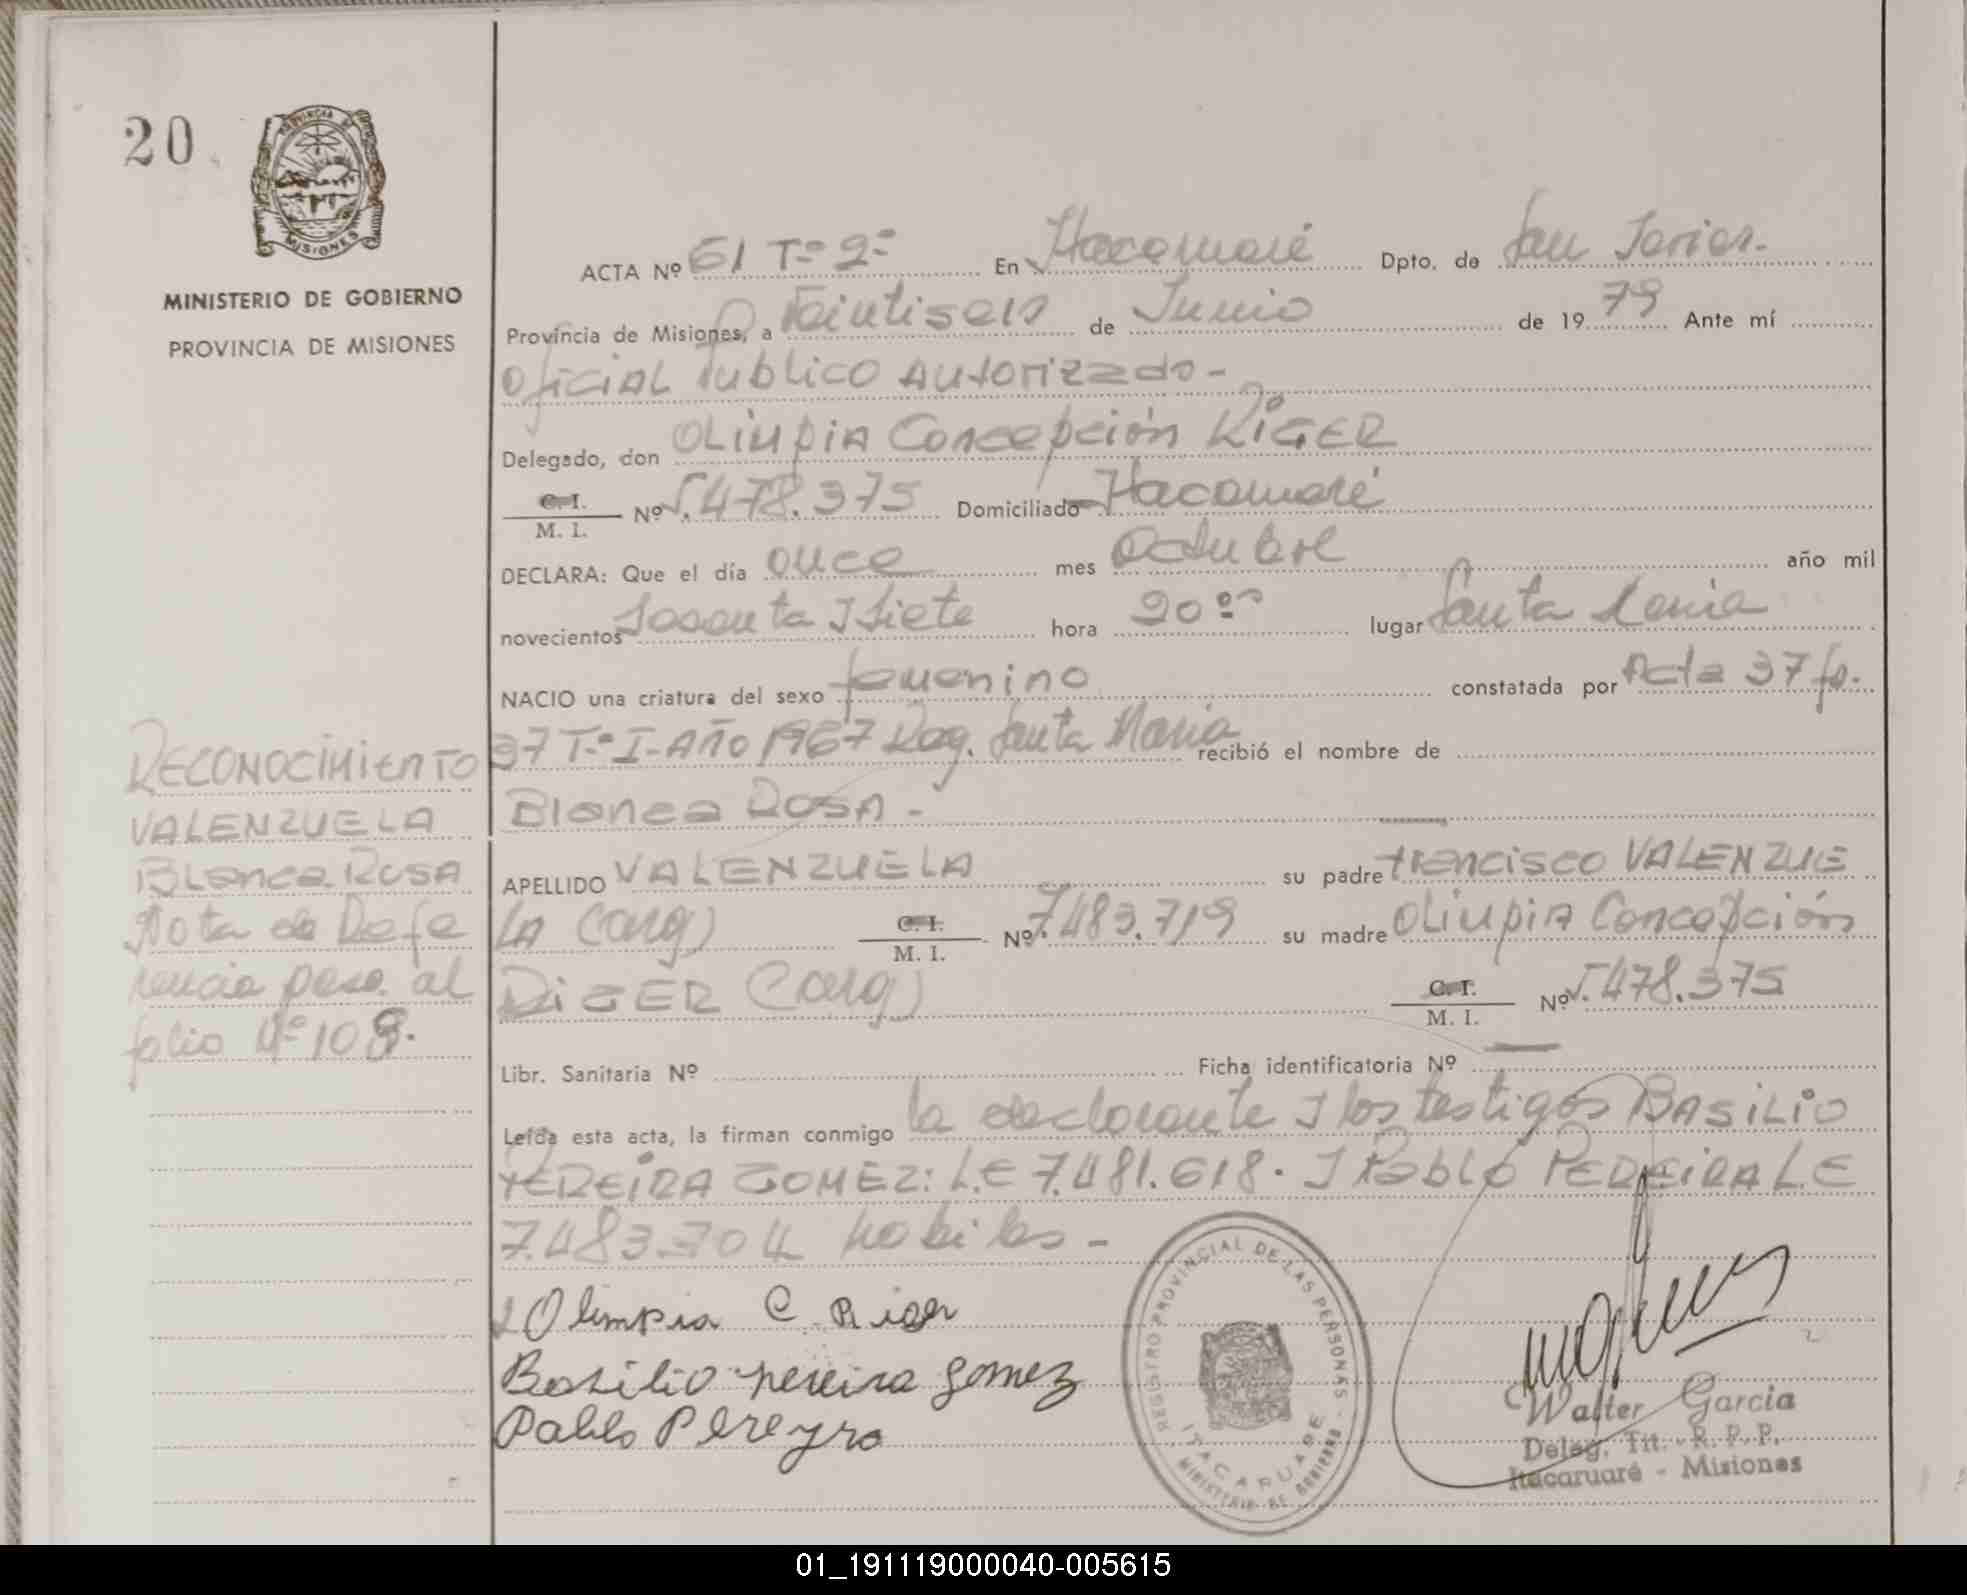 20
PROVINCIA DE
MISIONES
MINISTERIO DE GOBIERNO
PROVINCIA DE MISIONES
ACTA Nº 61 Tº 2º En Itacaruaré Dpto. de San Javier.
Provincia de Misiones, a Veintiseis de Junio de 1979 Ante mí
Oficial Publico Autorizado -
Delegado, don OLIMPIA Concepción RiGER
C. I.
M. I. Nº 5.478.375 Domiciliado Itacaruaré
DECLARA: Que el día once mes Octubre año mil
novecientos Sesenta y Siete hora 20 lugar Santa María
NACIO una criatura del sexo femenino constatada por Acta 37 fo.
37 Tº I- Año 1967 Reg. Santa María recibió el nombre de
Blanca ROSA -
APELLIDO VALENZUELA su padre Francisco VALENZUE
LA (arg) C. I.
M. I. Nº 7.483.719 su madre OLIMPIA Concepción
RiGER (arg) C. I.
M. I. Nº 5.478.375
Libr. Sanitaria Nº Ficha identificatoria Nº
Leída esta acta, la firman conmigo la declarante y los testigos BASILIO
PEREIRA GOMEZ: L.E 7.481.618. y Pablo PEREIRA L.E
7.483.704 habiles -
RECONOCIMIENTO
VALENZUELA
Blanca ROSA
Nota de Refe
rencia pasa al
folio Nº 109.
Olimpia C. Riger
Basilio pereira gomez
Pablo Pereyra
REGISTRO PROVINCIAL DE LAS PERSONAS
ITACARUARE
MINISTERIO DE GOBIERNO
Walter Garcia
Deleg. Tit. R. P. P.
Itacaruaré - Misiones
01_191119000040-005615